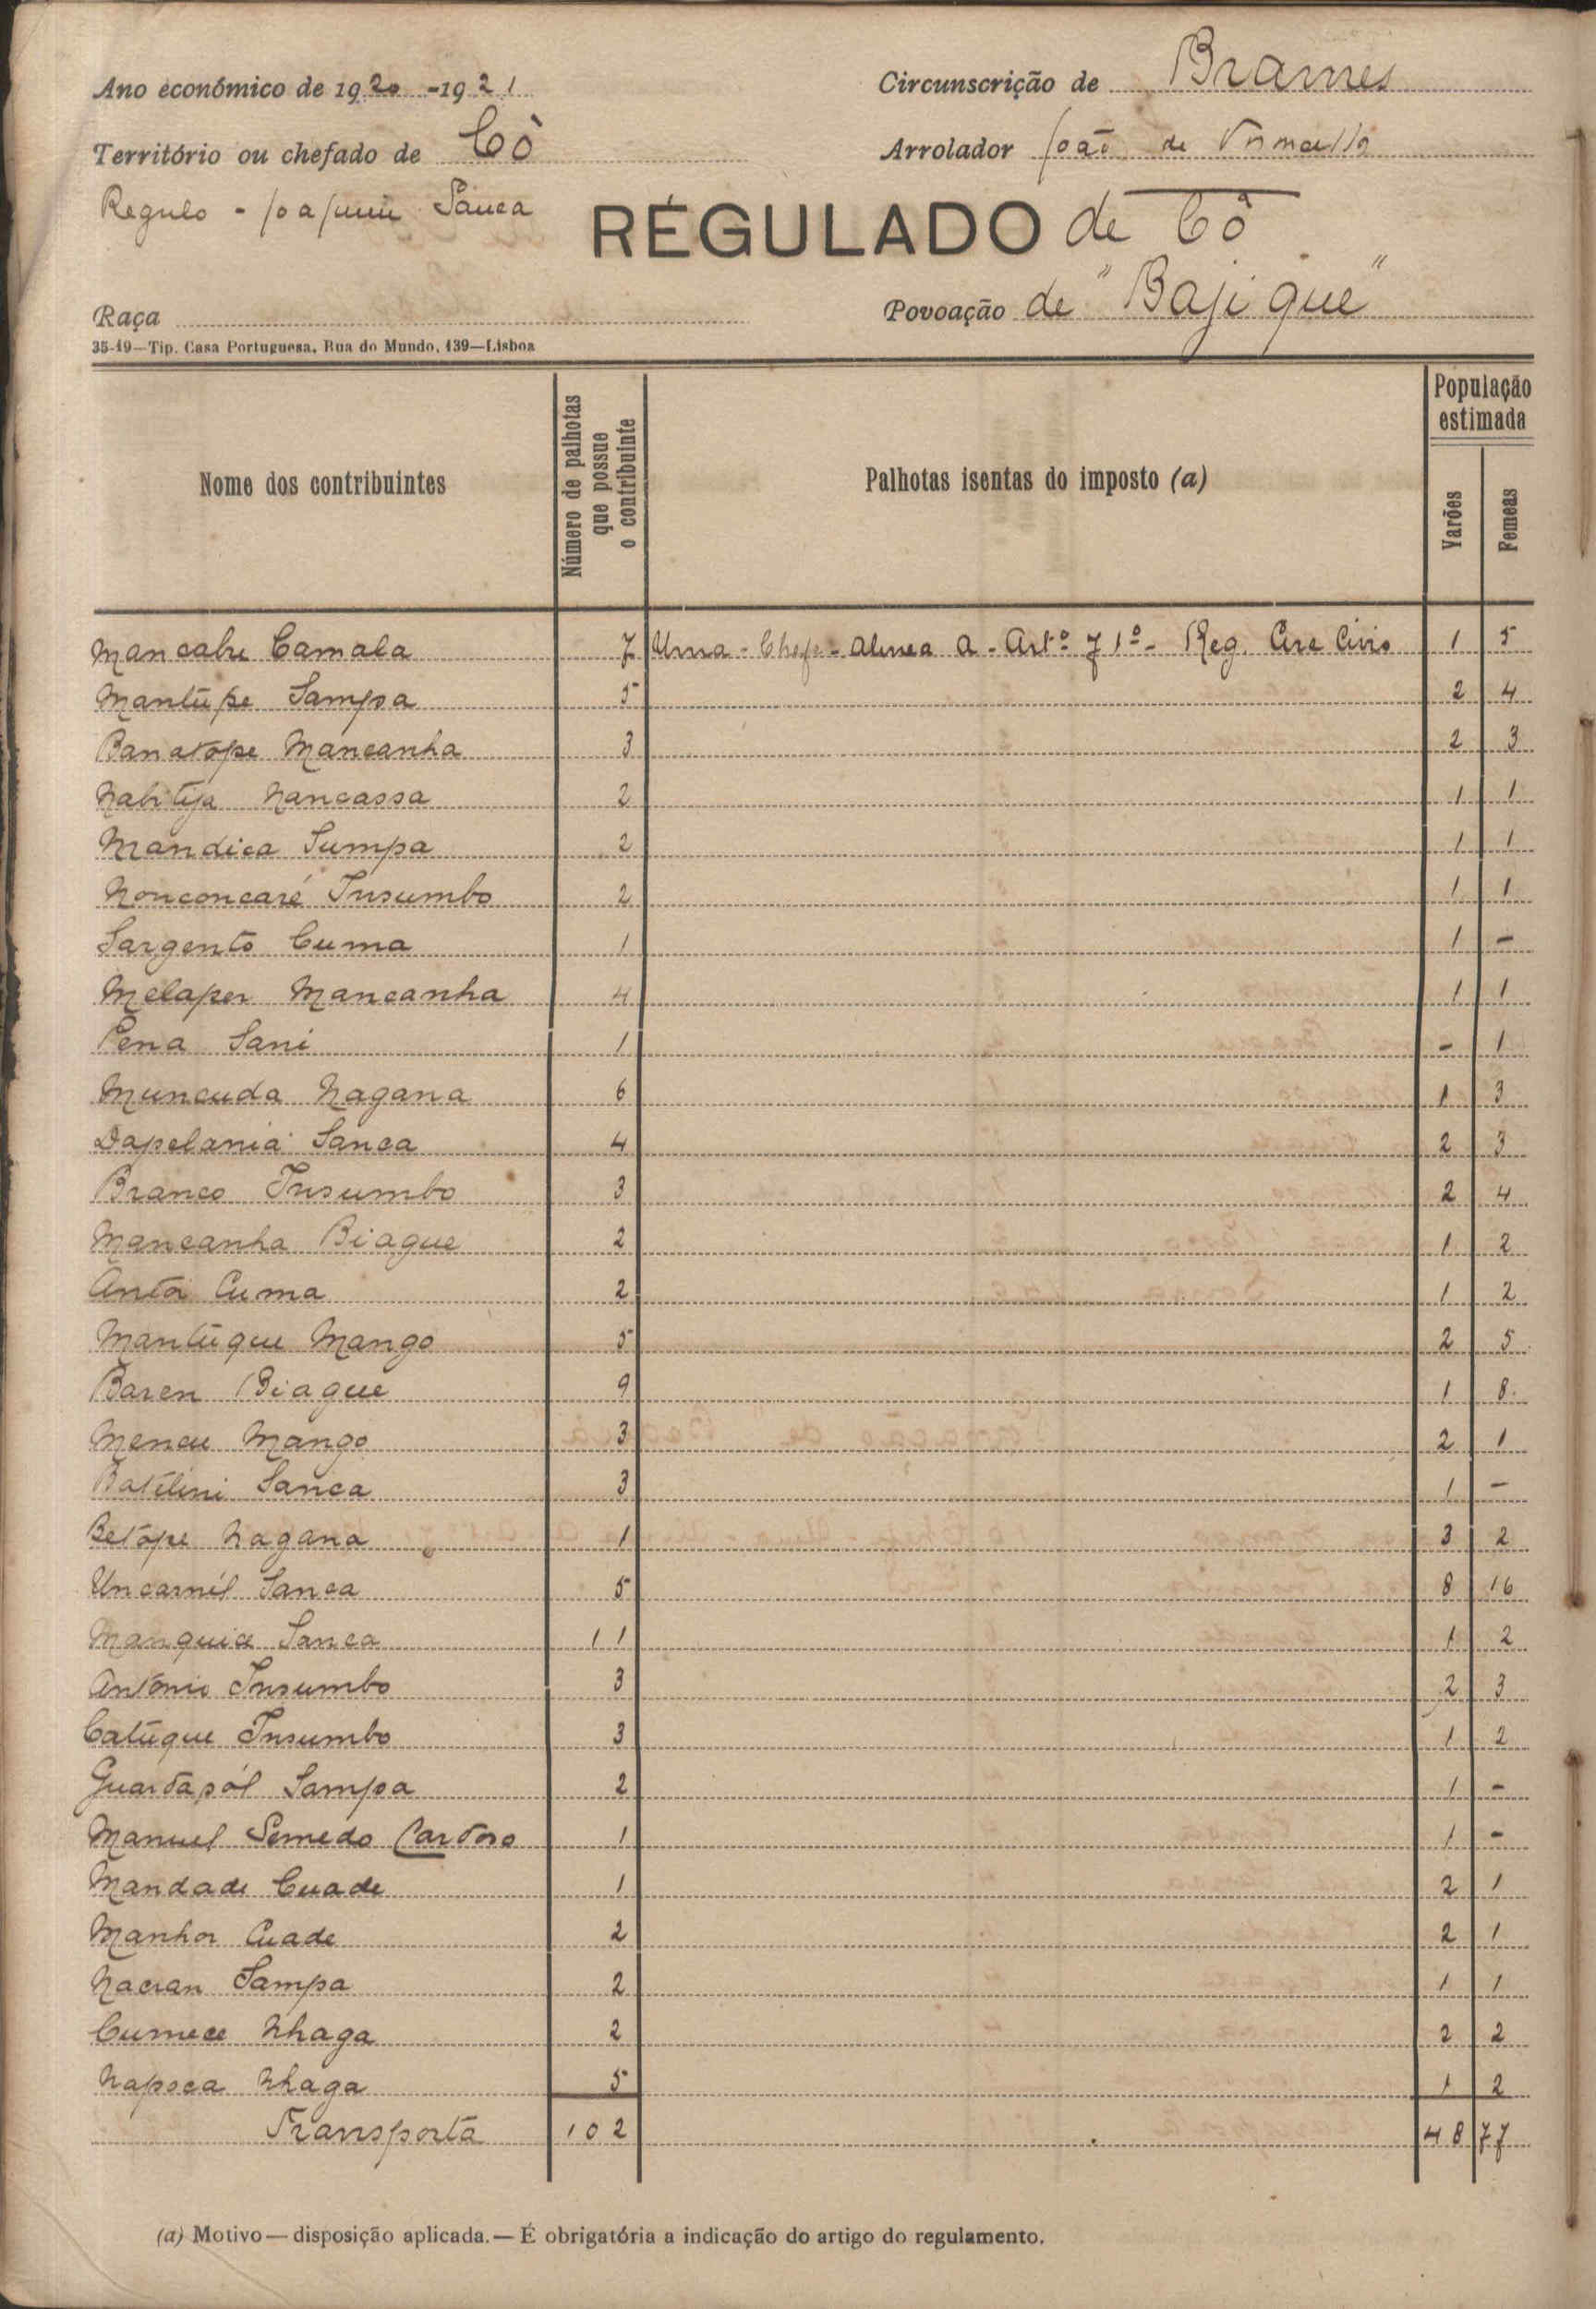 Ano económico de 1920-1921 Circunscrição de Brames
Território ou chefado de Cô Arrolador João de
Regulo - Joaquim Sanca
RÉGULADO de Cô
Raça Povoação de "Bajique"
35-19—Tip. Casa Portuguesa, Rua do Mundo, 139—Lisboa
Nome dos contribuintes Número de palhotas que possue o contribuinte Palhotas isentas do imposto (a) População estimada Varões Femeas
Mancabu Camala 7 Uma - Chefe - alinea a - Artº 71º - Reg. Circ Civis 1 5
Mantúpe Sampa 5 2 4
Banatope Mancanha 3 2 3
Nabitija Nancassa 2 1 1
Mandica Sumpa 2 1 1
Nonconcaré Insumbo 2 1 1
Sargento Cuma 1 1 -
Melaper Mancanha 4 1 1
Pena Sani 1 - 1
Muncuda Nagana 6 1 3
Dapelania Sanca 4 2 3
Branco Insumbo 3 2 4
Mancanha Biague 2 1 2
Antói Cuma 2 1 2
Mantúque Mango 5 2 5
Baren Biague 9 1 8
Mencu Mango 3 2 1
Batilini Sanca 3 1 -
Betope Nagana 1 3 2
Uncarnil Sanca 5 8 16
Manquia Sanca 11 1 2
António Insumbo 3 2 3
Catúque Insumbo 3 1 2
Guardasól Sampa 2 1 -
Manuel Semedo Cardoso 1 1 -
Mandade Cuade 1 2 1
Manhor Cuade 2 2 1
Nacran Sampa 2 1 1
Cumece Nhaga 2 2 2
Napoca Nhaga 5 1 2
Transporta 102 48 77
(a) Motivo—disposição aplicada.—É obrigatória a indicação do artigo do regulamento.